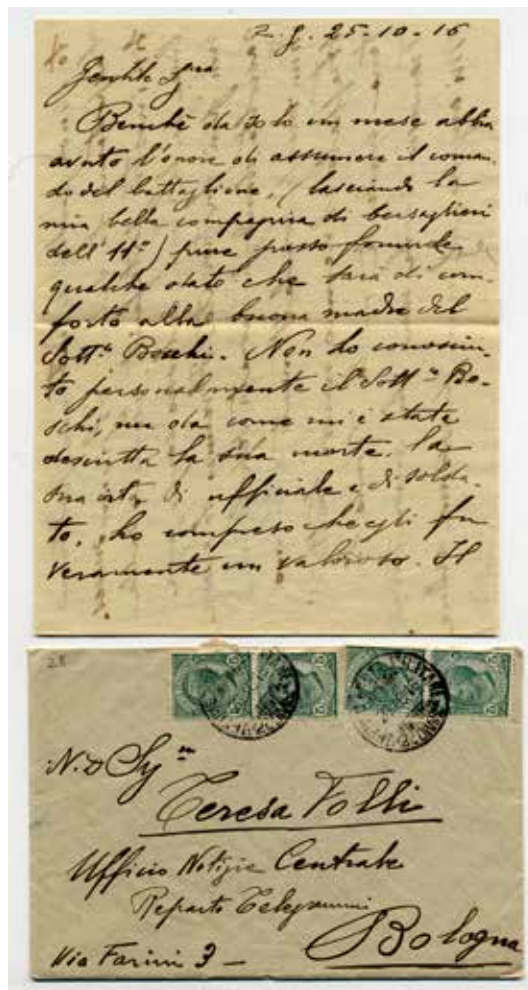 Z. G. 25-10-16
Gentile Sig.ra
Benchè da solo un mese abbia
avuto l'onore di assumere il coman-
do del battaglione, (lasciando la
mia bella compagnia di bersaglieri
dell' 11º) pure posso fornirle
qualche dato che sarà di con-
forto alla buona madre del
Sott.n Boschi. Non ho conosciu-
to personalmente il Sott.n Bo-
schi, ma da come mi è stata
descritta la sua morte, la
sua vita di ufficiale e di solda-
to, ho compreso che egli fu
veramente un valoroso. Il
28
N. D
Teresa Folli
Ufficio Notizie Centrale
Reparto Telegrammi
Bologna
Via Farini 3 -